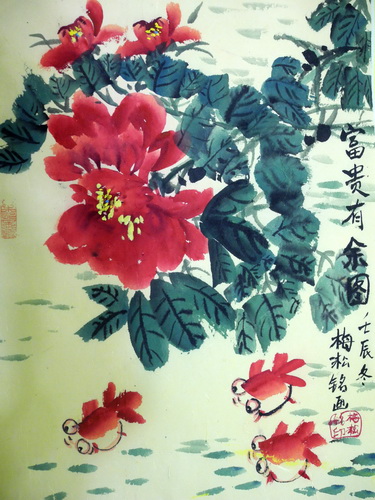 富贵有余图
壬辰冬
梅松铭画